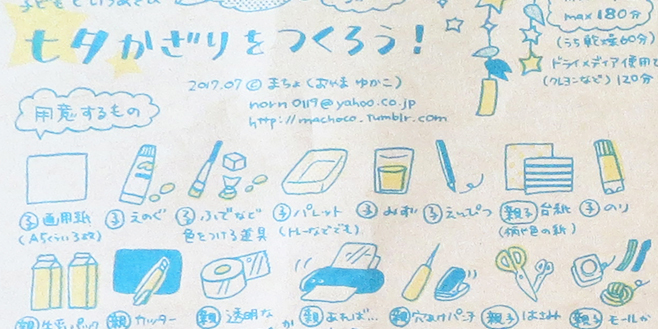 max 180分
七夕かざりをつくろう!
(うち乾燥60分)
ドライメディア使用で
(クレヨンなど) 120分
2017.07 © まちょ(おやま ゆかこ)
norm0119@yahoo.co.jp
http://machoco.tumblr.com
用意するもの
子 画用紙
(A5くらい
子 えのぐ
子 ふでなど
色をつける道具
子 パレット
(トレーなどでも)
子 みず
子 えんぴつ
親子 台紙
(柄や色の紙)
子 のり
親 牛乳パック
親 カッター
親 透明な
親 あれば…
親 穴あけパンチ
親子 はさみ
親子 モールか